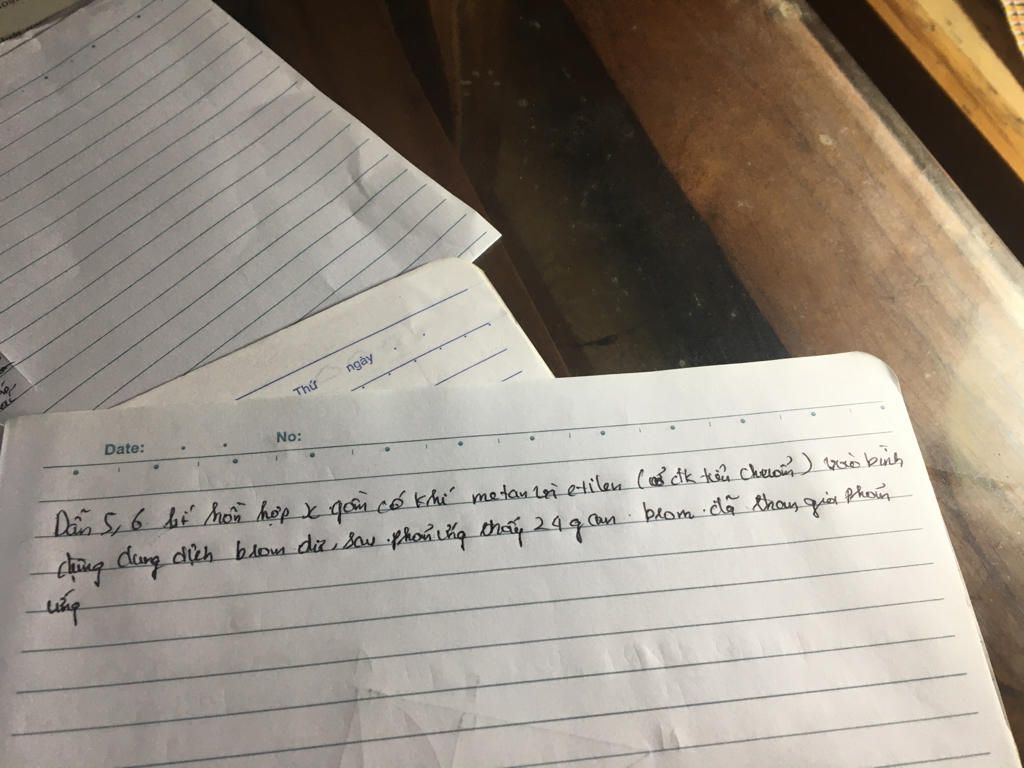 Thứ ngày
Date: No:
Dẫn 5,6 lít hỗn hợp X gồm có khí metan và etilen (ở đk tiêu chuẩn) vào bình
đựng dung dịch brom dư, sau phản ứng thấy 24 g brom đã tham gia phản
ứng